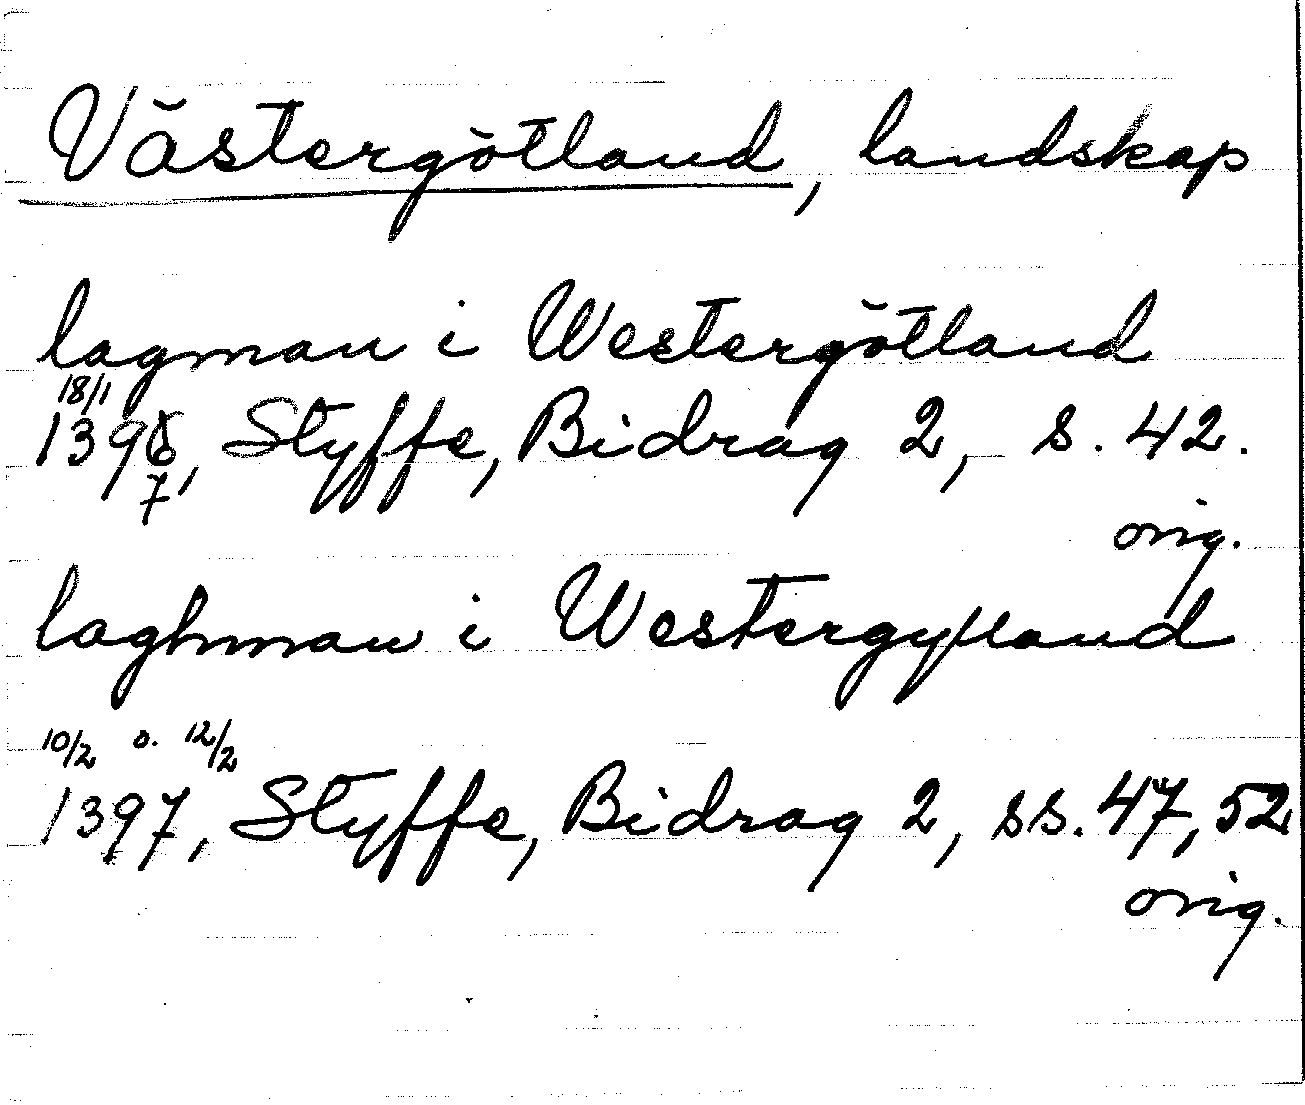 Västergötland, landskap
lagman i Westergötland
18/1
1396, Styffe, Bidrag 2, s. 42.
7
orig.
laghman i Westergyland
10/2 o. 12/2
1397, Styffe, Bidrag 2, ss. 47, 52
orig.